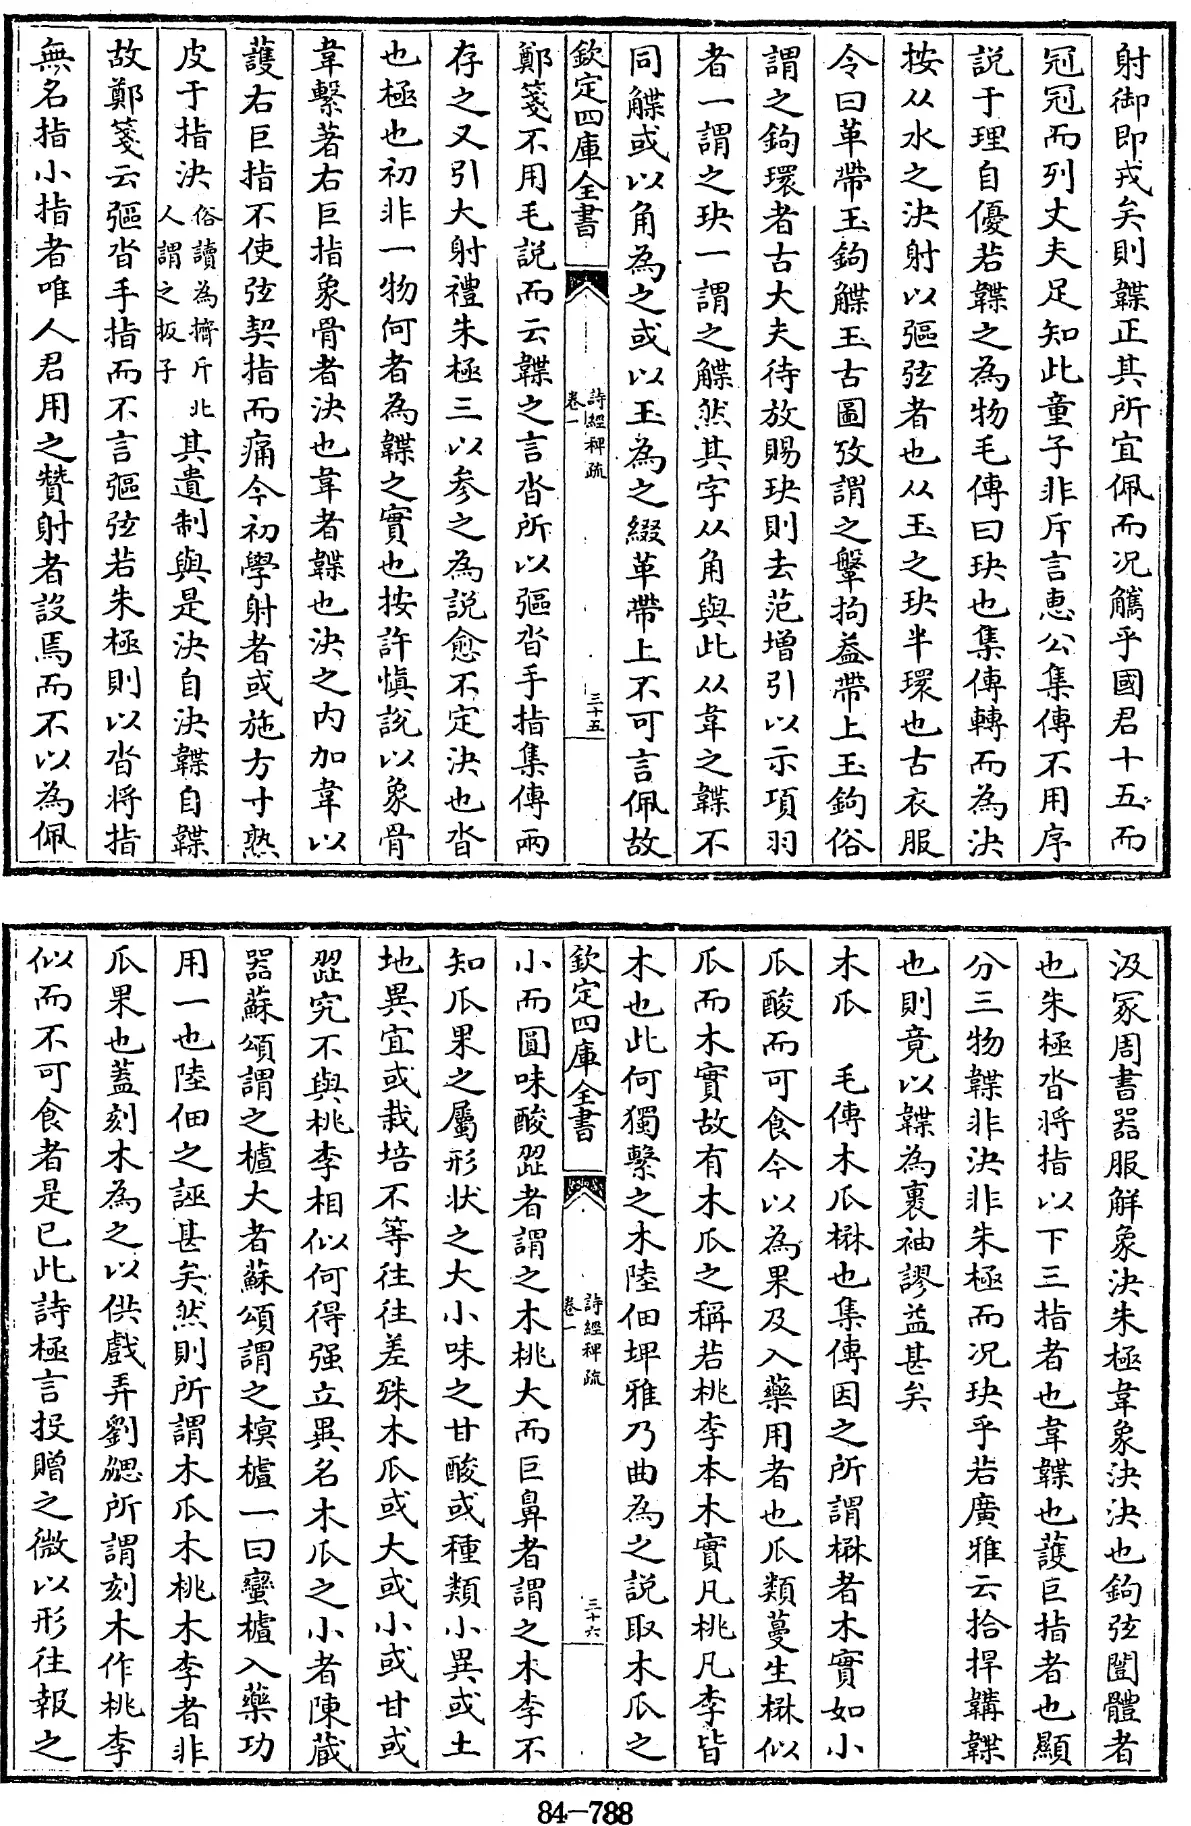 射御即戎矣則韘正其所宜佩而况觿乎國君十五而
冠冠而列丈夫足知此童子非斥言惠公集傳不用序
説于理自優若韘之為物毛傳曰玦也集傳轉而為決
按从水之決射以彄弦者也从玉之玦半環也古衣服
令曰革帶玉鉤䚢玉古圖攷謂之鞶拘葢帶上玉鉤俗
謂之鉤環者古大夫待放賜玦則去范增引以示項羽
者一謂之玦一謂之䚢然其字从角與此从韋之韘不
同䚢或以角為之或以玉為之綴革帶上不可言佩故
欽定四庫全書
詩經稗疏
卷一
三十五
鄭箋不用毛説而云韘之言沓所以彄沓手指集傳兩
存之又引大射禮朱極三以参之為説愈不定決也沓
也極也初非一物何者為韘之實也按許慎説以象骨
韋繫著右巨指象骨者決也韋者韘也決之内加韋以
護右巨指不使弦契指而痛今初學射者或施方寸熟
皮于指決俗讀為擠斤北人謂之扳子其遺制與是決自決韘自韘
故鄭箋云彄沓手指而不言彄弦若朱極則以沓將指
無名指小指者唯人君用之贊射者設焉而不以為佩
汲冢周書器服解象決朱極韋象決決也鉤弦闓體者
也朱極沓將指以下三指者也韋韘也護巨指者也顯
分三物韘非決非朱極而况玦乎若廣雅云拾捍韝韘
也則竟以韘為裹袖謬益甚矣
木瓜　毛傳木瓜楙也集傳因之所謂楙者木實如小
瓜酸而可食今以為果及入藥用者也瓜類蔓生楙似
瓜而木實故有木瓜之稱若桃李本木實凡桃凡李皆
木也此何獨繫之木陸佃埤雅乃曲為之説取木瓜之
欽定四庫全書
詩經稗疏
卷一
三十六
小而圓味酸澀者謂之木桃大而巨鼻者謂之木李不
知瓜果之屬形状之大小味之甘酸或種類小異或土
地異宜或栽培不等往往差殊木瓜或大或小或甘或
澀究不與桃李相似何得强立異名木瓜之小者陳蔵
器蘇頌謂之樝大者蘇頌謂之榠樝一曰蠻樝入藥功
用一也陸佃之誣甚矣然則所謂木瓜木桃木李者非
瓜果也葢刻木為之以供戲弄劉勰所謂刻木作桃李
似而不可食者是已此詩極言投贈之微以形往報之
84—788